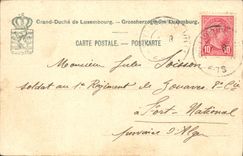 Grand-Duché de Luxembourg. - Grossherzogtum Luxemburg.
CARTE POSTALE. - POSTKARTE
Monsieur Jules Soisson
soldat au 1er Régiment de Zouaves 8e Cie
à Fort-National
province d'Alger
10 10